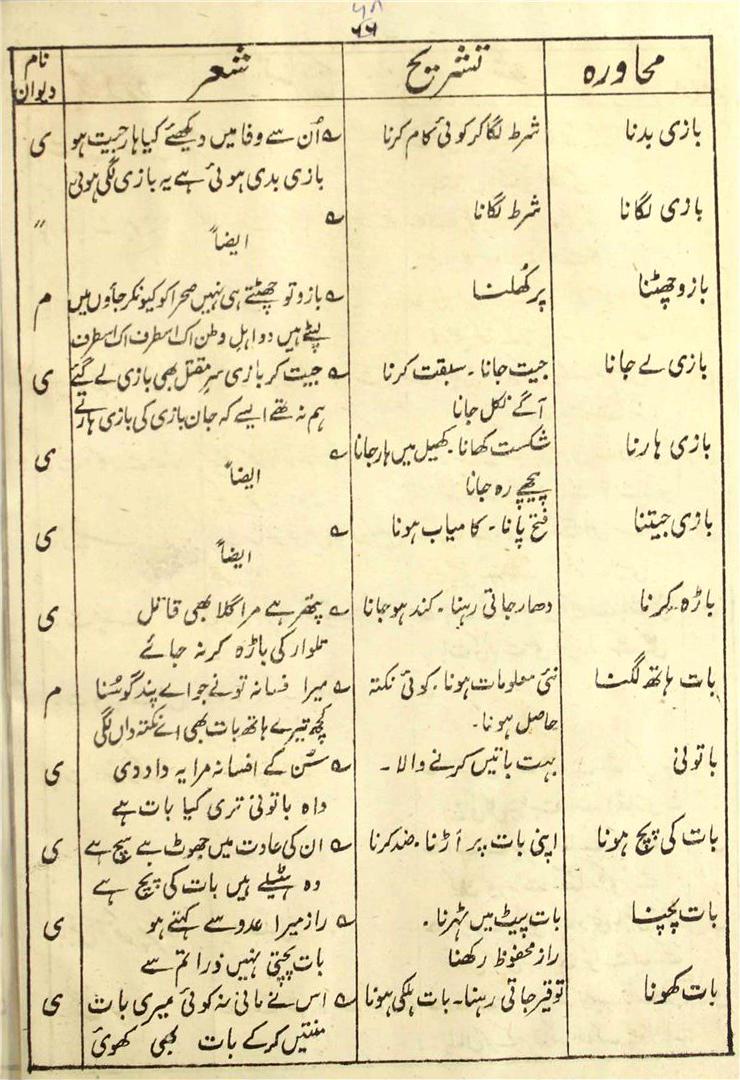 ۶۶
محاورہ | تشریح | شعر | نام دیوان
بازی بدنا | شرط لگا کر کوئی کام کرنا | ؎ اُن سے وفا میں دیکھئے کیا ہار جیت ہو | ی
بازی بدی ہوئی ہے یہ بازی لگی ہوئی
بازی لگانا | شرط لگانا | ؎ ایضاً | 〃
بازو چھٹنا | پر کھُلنا | ؎ بازو تو چھٹتے ہی نہیں صحرا کو کیونکر جاؤں میں | م
لپٹے ہیں دو اہلِ وطن اک اسطرف اک اسطرف
بازی لے جانا | جیت جانا ۔ سبقت کرنا | ؎ جیت کر بازی سرِ مقتل بھی بازی لے گئے | ی
آگے نکل جانا | ہم نہ تھے ایسے کہ جان بازی کی بازی ہارتے
بازی ہارنا | شکست کھانا ۔ کھیل میں ہار جانا | ؎ ایضاً | ی
پیچھے رہ جانا
بازی جیتنا | فتح پانا ۔ کامیاب ہونا | ؎ ایضاً | ی
باڑہ گرنا | دھار جاتی رہنا ۔ کند ہو جانا | ؎ پتھر ہے مرا گلا بھی قاتل | ی
تلوار کی باڑہ گر نہ جائے
بات ہاتھ لگنا | نئی معلومات ہونا ۔ کوئی نکتہ | ؎ میرا فسانہ تونے جو اے پند گو سُنا | م
حاصل ہونا ۔ | کچھ تیرے ہاتھ بات بھی اے نکتہ داں لگی
باتونی | بہت باتیں کرنے والا ۔ | ؎ سُن کے افسانہ مرا یہ داد دی | ی
واہ باتونی تری کیا بات ہے
بات کی پچ ہونا | اپنی بات پر اڑنا ۔ ضد کرنا | ؎ ان کی عادت میں جھوٹ ہے سچ ہے | ی
وہ ہٹیلے ہیں بات کی پچ ہے
بات پچنا | بات پیٹ میں ٹہرنا ۔ | ؎ راز میرا عدو سے کہتے ہو | ی
راز محفوظ رکھنا | بات پچتی نہیں ذرا تم سے
بات کھونا | توقیر جاتی رہنا ۔ بات ہلکی ہونا | ؎ اس نے مانی نہ کوئی میری بات | ی
منتیں کرکے بات بھی کھوئی